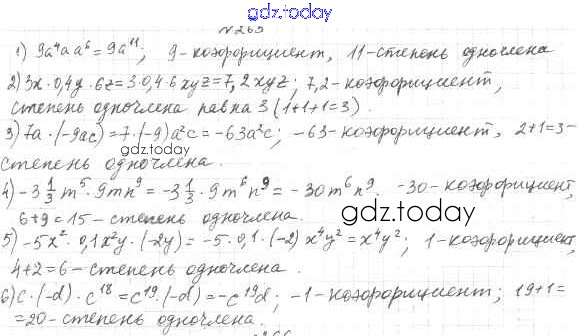 gdz.today
N 265
1) 9a⁴a a⁶ = 9a¹¹; 9-коэффициент, 11-степень одночлена
2) 3x · 0,4y · 6z = 3 · 0,4 · 6 xyz = 7,2xyz; 7,2-коэффициент,
степень одночлена равна 3 (1+1+1=3).
gdz.today
3) 7a · (-9ac) = 7 · (-9)a²c = -63a²c; -63-коэффициент, 2+1=3-
степень одночлена.
4) -3 1/3 m⁵ · 9mn⁹ = -3 1/3 · 9m⁶n⁹ = -30m⁶n⁹. -30-коэффициент,
6+9=15-степень одночлена.
gdz.today
5) -5x² · 0,1x²y · (-2y) = -5 · 0,1 · (-2) x⁴y² = x⁴y²; 1-коэффициент,
4+2=6-степень одночлена.
6) c · (-d) · c¹⁸ = c¹⁹ · (-d) = -c¹⁹d; -1-коэффициент; 19+1=
=20-степень одночлена.
gdz.today